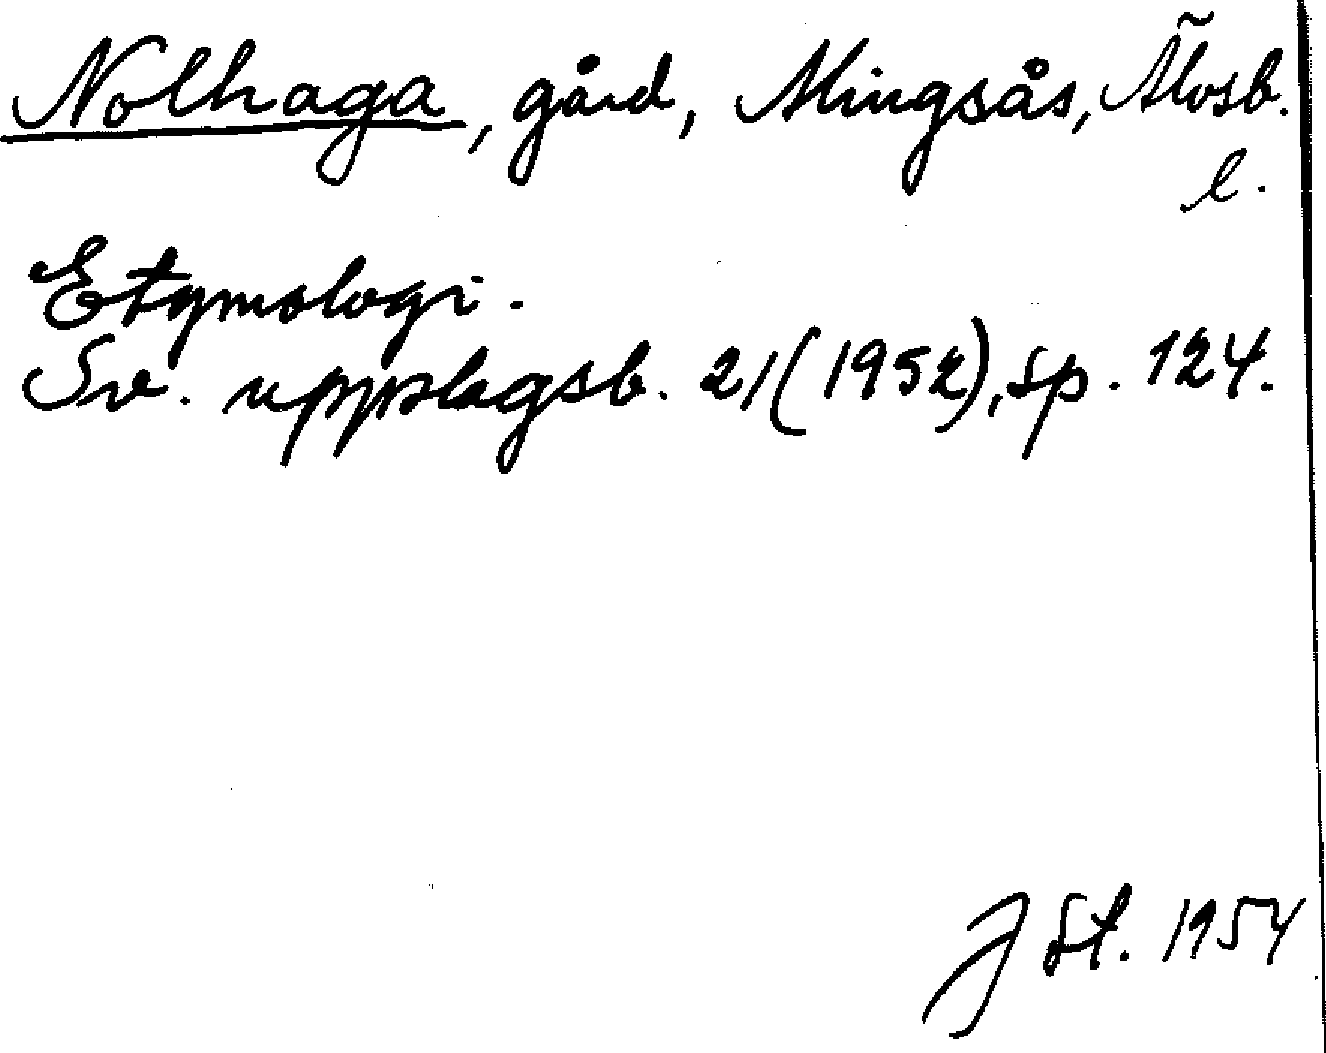 Nolhaga, gård, Alingsås, Älvsb.
l.
Etymologi.
Sv. uppslagsb. 21 (1952), sp. 124.
J St. 1954